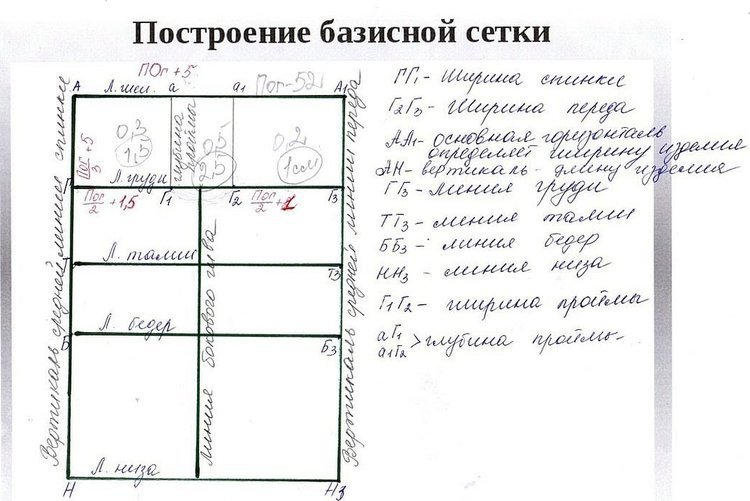 Построение базисной сетки
ПОг+5
А Л. шеи. а а1 Пог-52 А1
Вертикаль средней линии спинки
Пог/3 + 5
0,3
1,5
глубина проймы
0,5
0,2
1 см
Вертикаль средней линии переда
Г Л. груди Г1 Г2 Г3
Пог/2 + 1,5
Пог/2 + 1
Л. талии
Т3
Линия бокового шва
Б Л. бедер Б3
Л. низа
Н Н3
ГГ1- Ширина спинки
Г2Г3- Ширина переда
АА1- основная горизонталь
определяет ширину изделия
АН- вертикаль - длину изделия
ГГ3- линия груди
ТТ3- линия талии
ББ3- линия бедер
НН3- линия низа
Г1Г2- ширина проймы
аГ1
а1Г2 > глубина проймы-